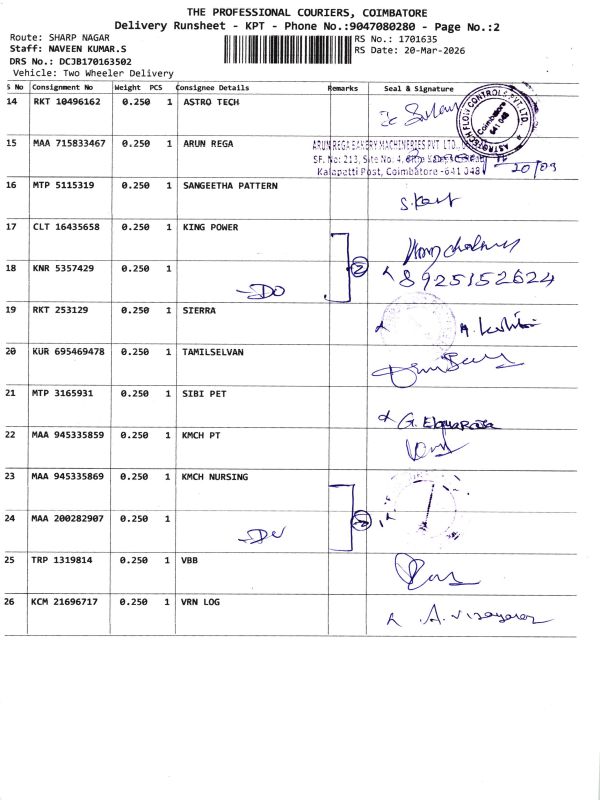 THE PROFESSIONAL COURIERS, COIMBATORE
Delivery Runsheet - KPT - Phone No.:9047080280 - Page No.:2
Route: SHARP NAGAR
RS No.: 1701635
Staff: NAVEEN KUMAR.S
RS Date: 20-Mar-2026
DRS No.: DCJB170163502
Vehicle: Two Wheeler Delivery
S No Consignment No Weight PCS Consignee Details Remarks Seal & Signature
14 RKT 10496162 0.250 1 ASTRO TECH
ASTROTECH FLOW CONTROLS PVT. LTD.
Coimbatore
641 048
15 MAA 715833467 0.250 1 ARUN REGA
ARUN REGA BAKERY MACHINERIES PVT. LTD.,
SF. No: 213, Site No: 4,
Kalapatti Post, Coimbatore - 641 048
20/03
16 MTP 5115319 0.250 1 SANGEETHA PATTERN
17 CLT 16435658 0.250 1 KING POWER
2
18 KNR 5357429 0.250 1
-DO
8925152624
19 RKT 253129 0.250 1 SIERRA
20 KUR 695469478 0.250 1 TAMILSELVAN
21 MTP 3165931 0.250 1 SIBI PET
22 MAA 945335859 0.250 1 KMCH PT
23 MAA 945335869 0.250 1 KMCH NURSING
2
24 MAA 200282907 0.250 1
-DO
25 TRP 1319814 0.250 1 VBB
26 KCM 21696717 0.250 1 VRN LOG